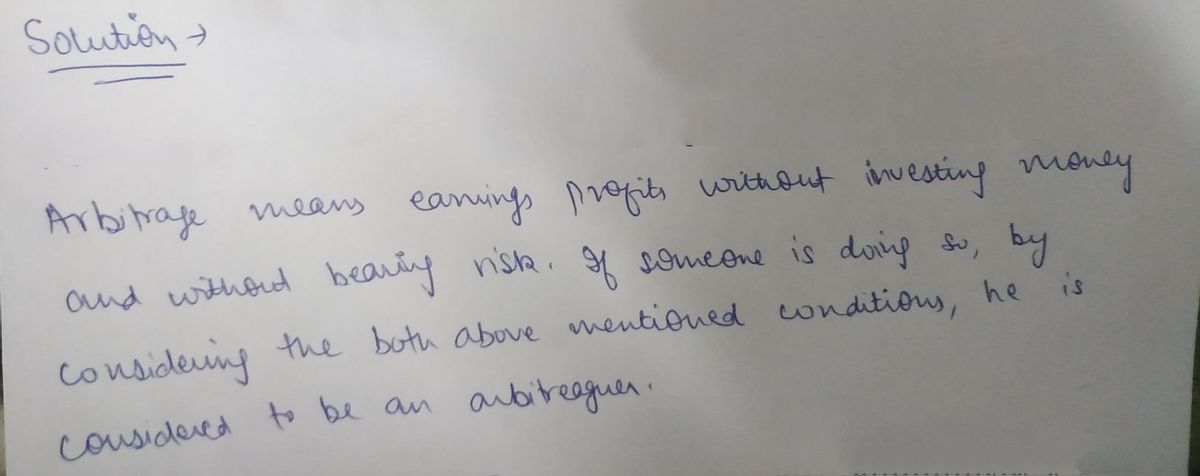 Solution →
Arbitrage means earnings profits without investing money
and without bearing risk. If someone is doing so, by
considering the both above mentioned conditions, he is
considered to be an arbitreaguer.